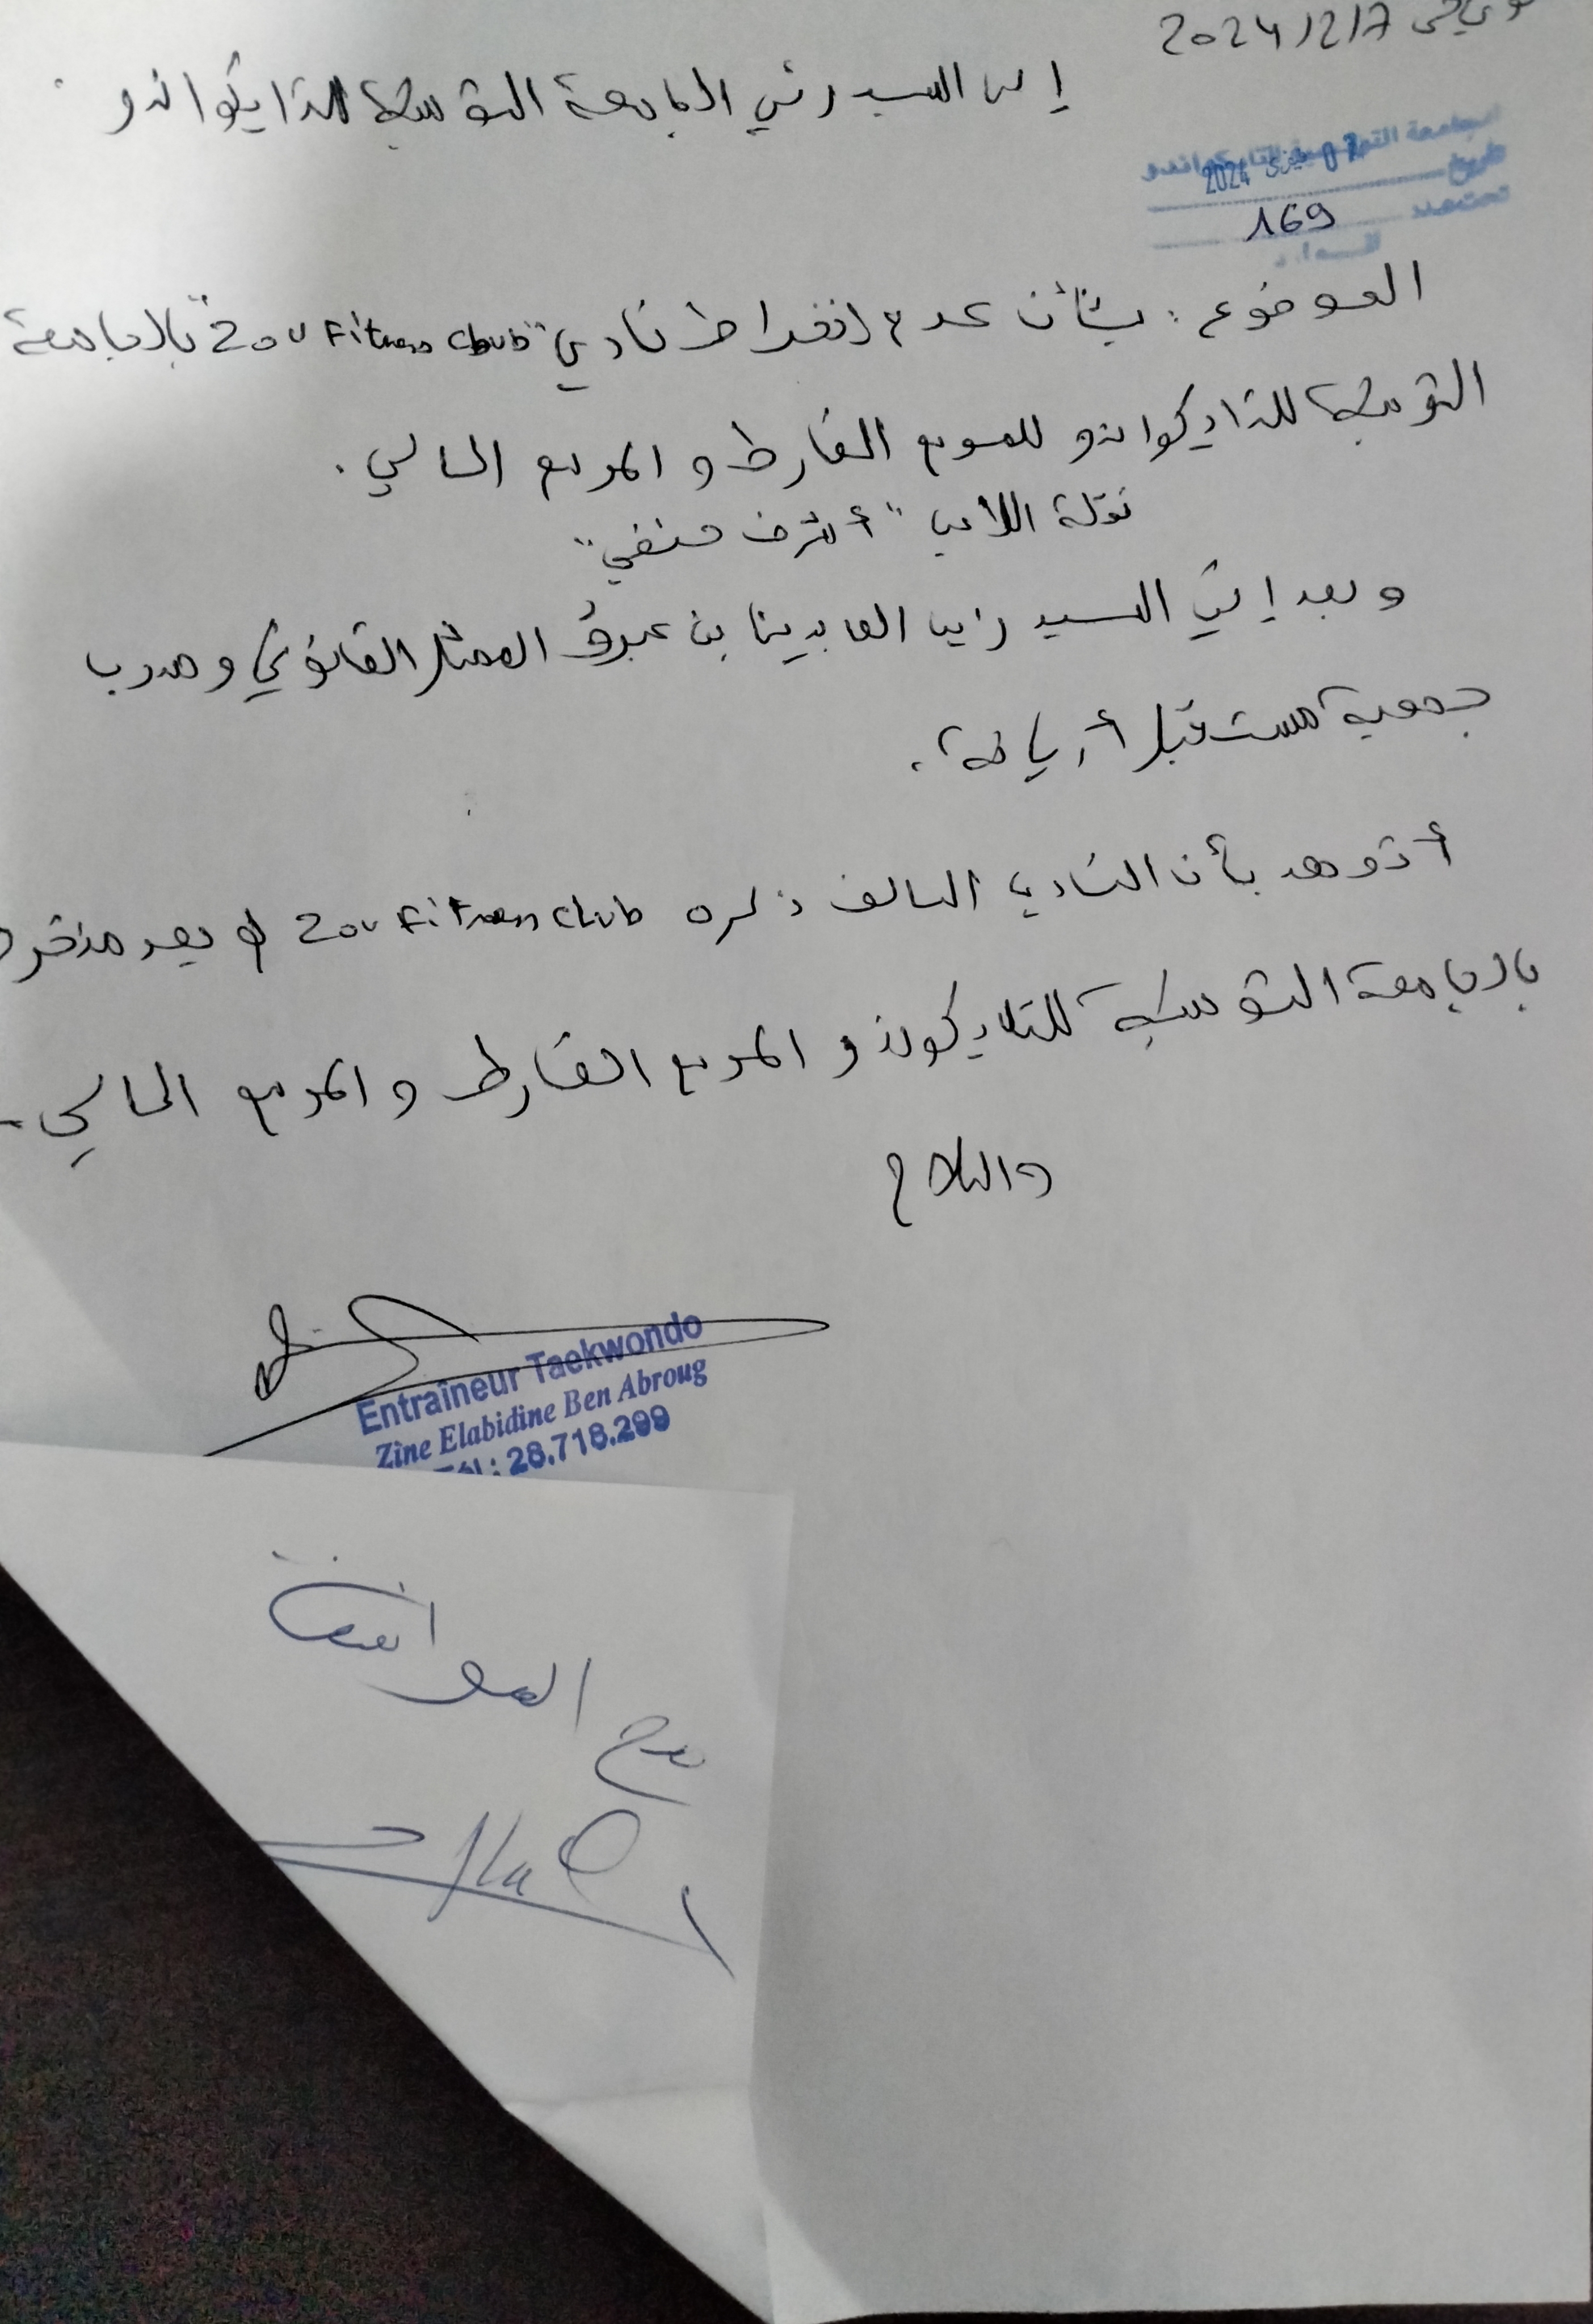 في 2024/2/7
إلى السيد رئيس الجامعة التونسية للتايكواندو
الجامعة التونسية للتايكواندو
07 فيفري 2024
تحت عدد 169
الموضوع: بشأن عدم انخراط نادي "Zou Fitness Club" بالجامعة
التونسية للتايكواندو للموسم الفارط و الموسم الحالي.
نقلة اللاعب "أشرف حنفي"
و بعد إني السيد زين العابدين بن عبروڨ الممثل القانوني و مدرب
جمعية مستقبل أريانة.
بأن النادي السالف ذكره Zou Fitness Club لم يعد منخرط
بالجامعة التونسية للتايكوندو الموسم الفارط و الموسم الحالي.
والسلام
Entraîneur Taekwondo
Zine Elabidine Ben Abroug
Tél: 28.718.299
مع الموافقة